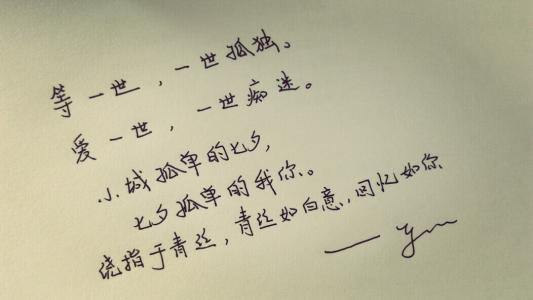 等一世，一世孤独。
爱一世，一世痴迷。
小城孤单的七夕，
七夕孤单的我你。
绕指于青丝，青丝如白意，回忆如你
—— y